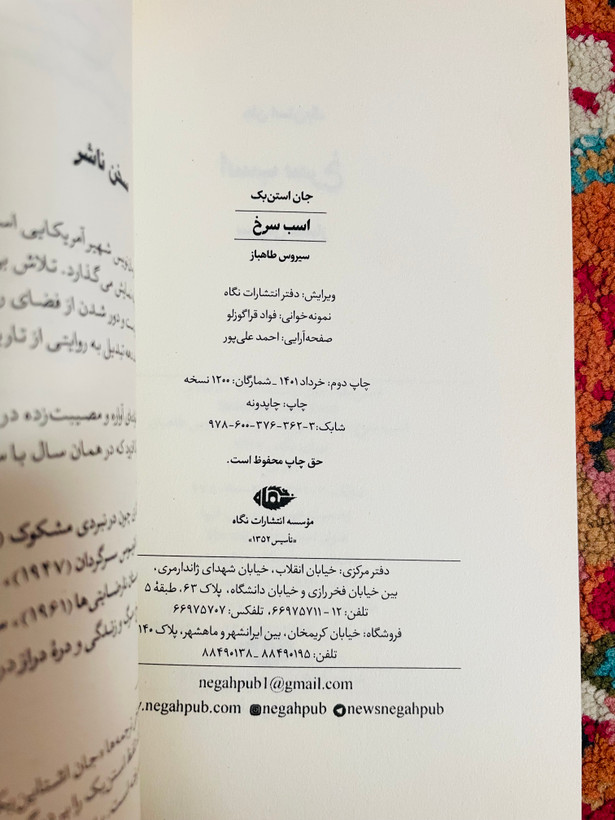 جان استن‌بک
اسب سرخ
سیروس طاهباز
ویرایش: دفتر انتشارات نگاه
نمونه‌خوانی: فواد قراگوزلو
صفحه‌آرایی: احمد علی‌پور
چاپ دوم: خرداد ۱۴۰۱ ـ شمارگان: ۱۲۰۰ نسخه
چاپ: چاپدونه
شابک: ۳-۳۶۲-۳۷۶-۶۰۰-۹۷۸
حق چاپ محفوظ است.
نگاه
مؤسسه انتشارات نگاه
«تأسیس ۱۳۵۲»
دفتر مرکزی: خیابان انقلاب، خیابان شهدای ژاندارمری،
بین خیابان فخر رازی و خیابان دانشگاه، پلاک ۶۳، طبقهٔ ۵
تلفن: ۱۲-۶۶۹۷۵۷۱۱، تلفکس: ۶۶۹۷۵۷۰۷
فروشگاه: خیابان کریمخان، بین ایرانشهر و ماهشهر، پلاک ۱۴۰
تلفن: ۸۸۴۹۰۱۹۵ ـ ۸۸۴۹۰۱۳۸
negahpub1@gmail.com
.negahpub.com negahpub newsnegahpub
سخن ناشر
نویس شهیر آمریکایی
نمایش می‌گذارد. تلاش
و دور شدن از فضای
تبدیل به روایتی از
آواره و مصیبت‌زده در
که در همان سال با
در نبردی مشکوک
اتوبوس سرگردان (۱۹۴۷)،
نارضایتی‌ها (۱۹۶۱)،
و زندگی و درهٔ دراز
ترجمه‌ها «جان اشتاین
استن‌بک را